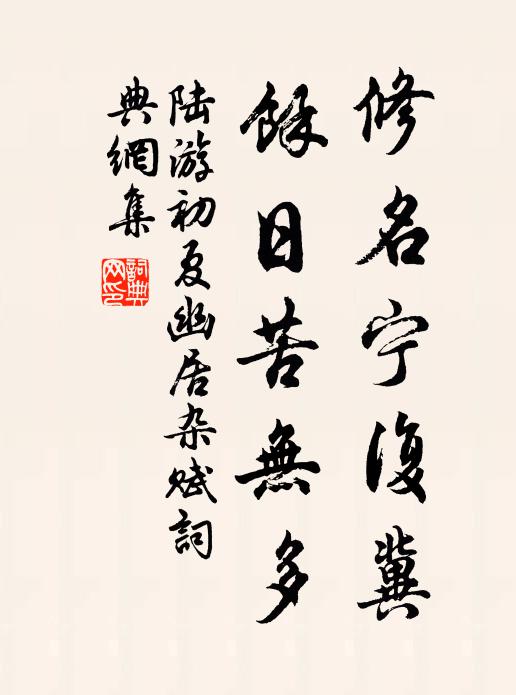 修名宁復冀
餘日苦無多
陆游初夏幽居杂赋詞
典網集
詞典
网印